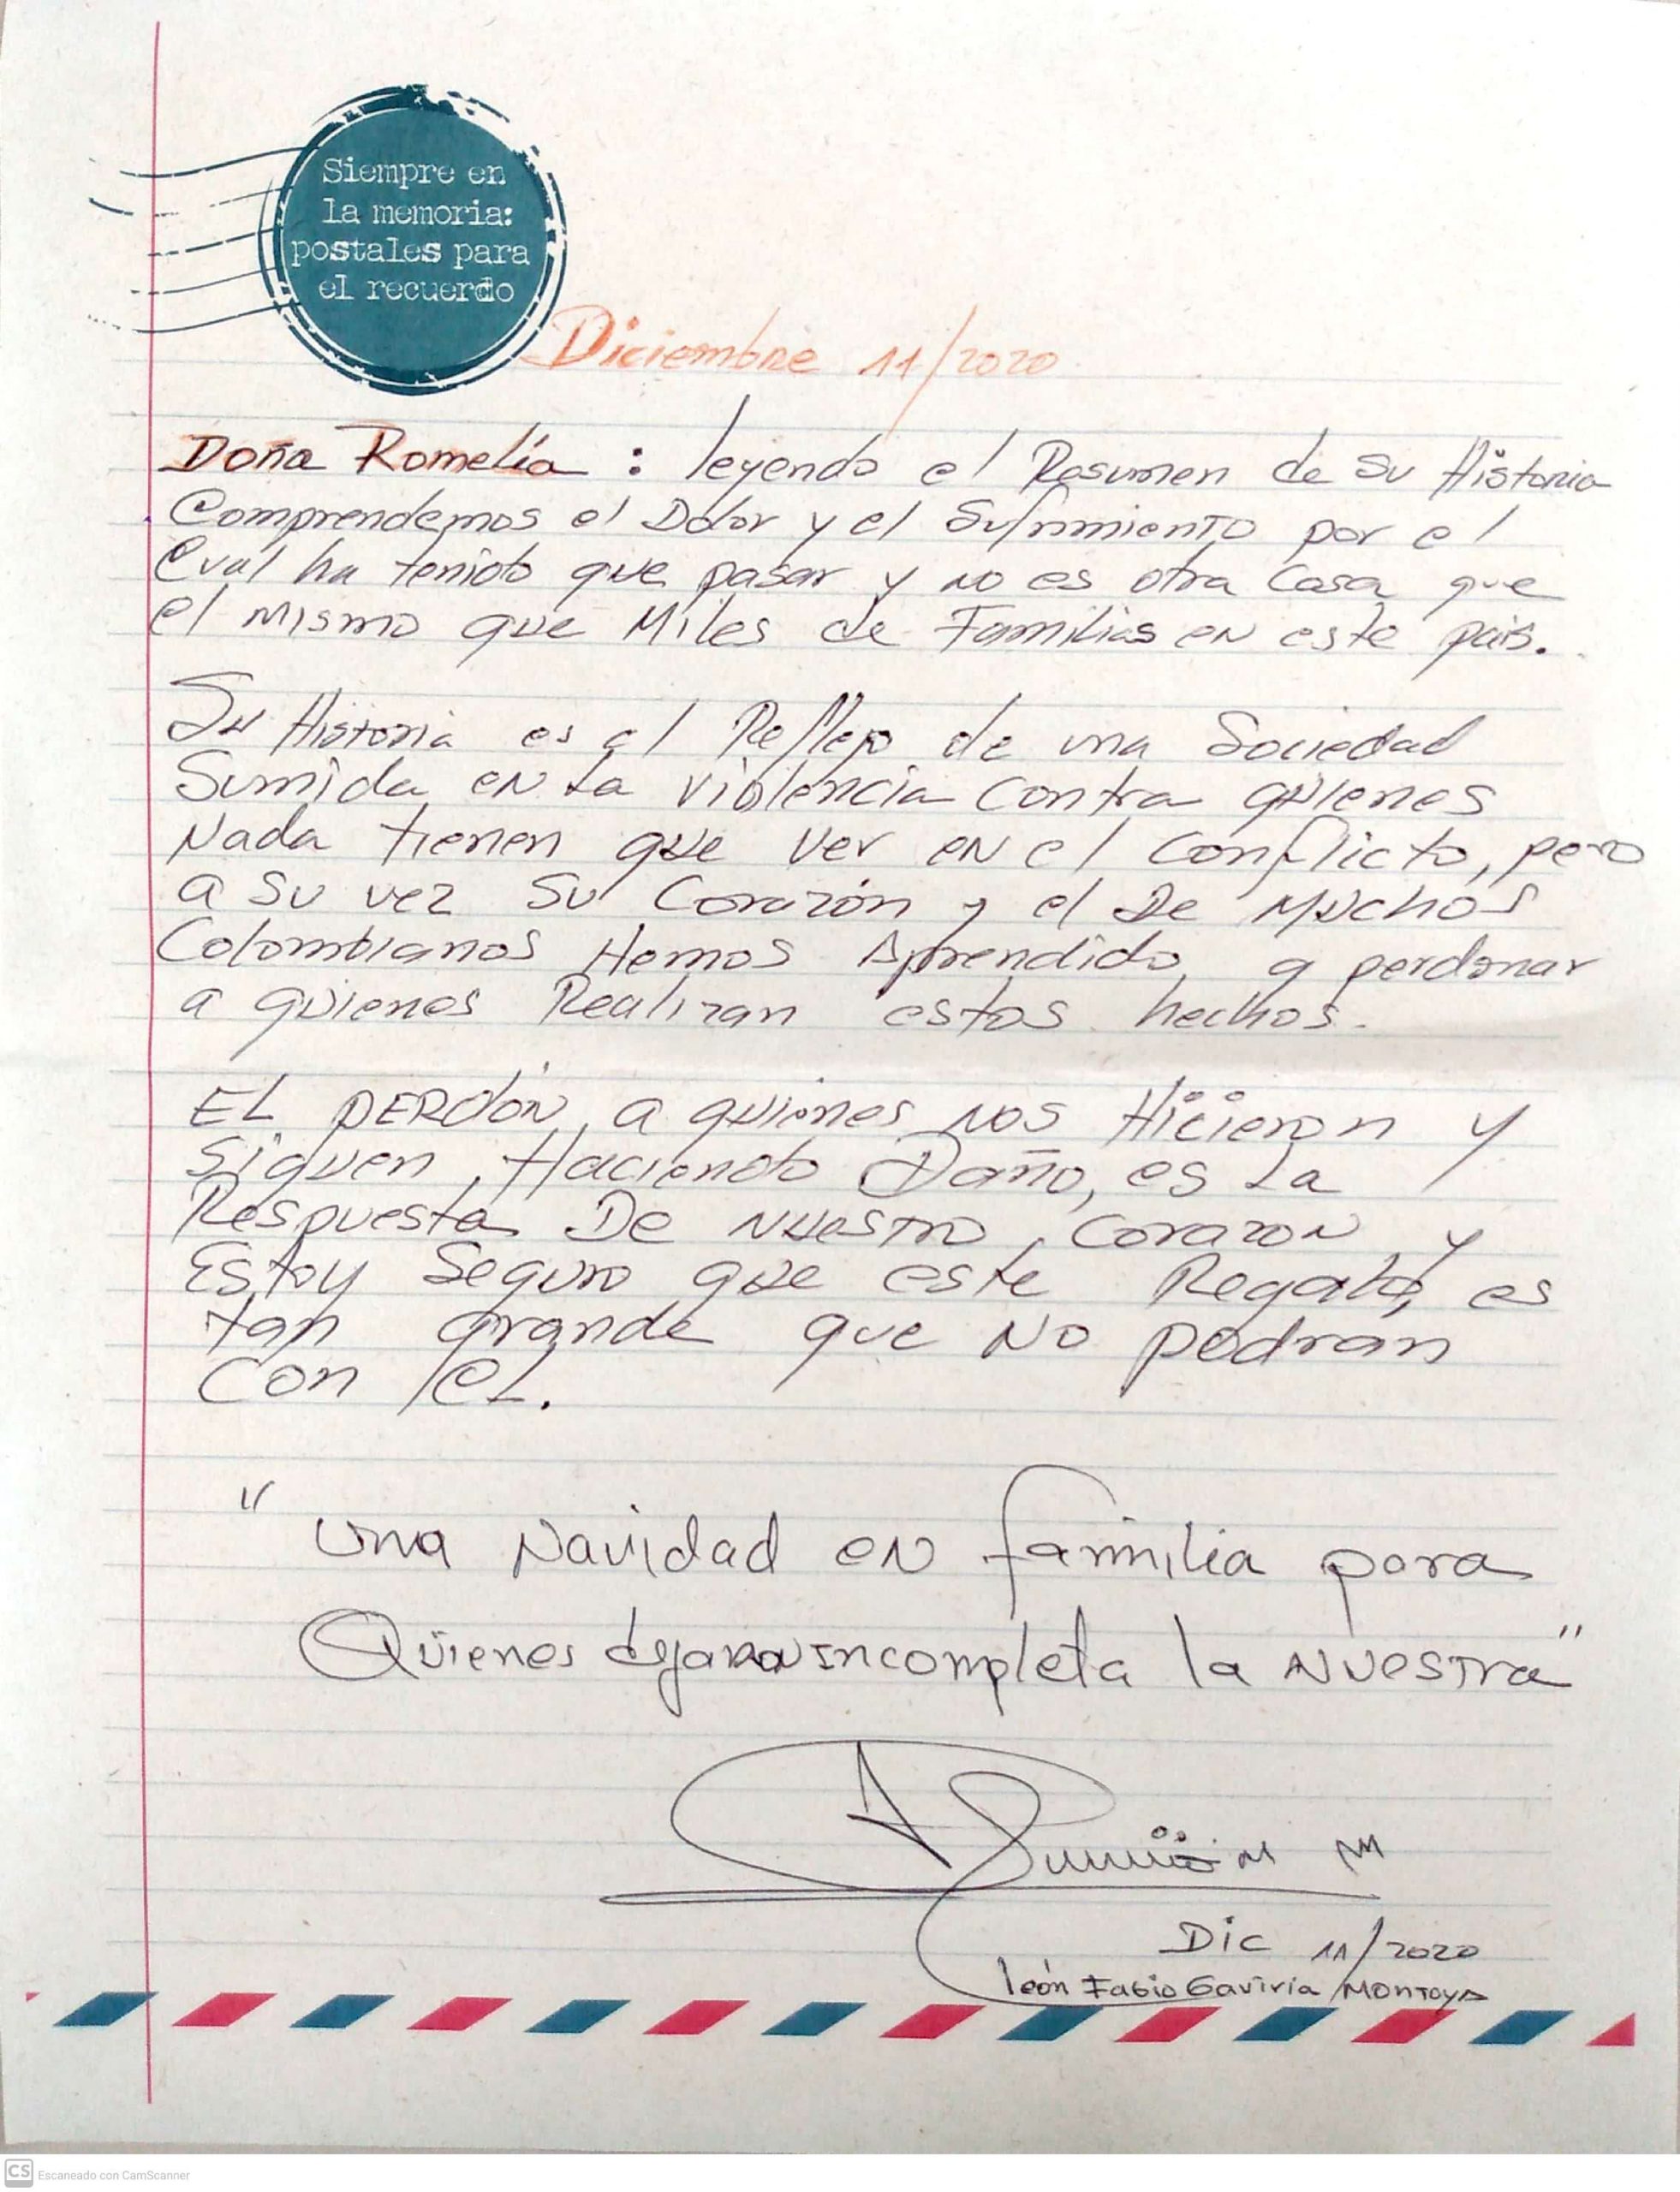 Siempre en
la memoria:
postales para
el recuerdo
Diciembre 11/2020
Doña Romelía : leyendo el Resumen de Su Historia
Comprendemos el Dolor y el Sufrimiento por el
Cual ha tenido que pasar y no es otra Cosa que
el Mismo que Miles de Familias en este país.
Su Historia es el Reflejo de una Sociedad
Sumida en La violencia contra quienes
Nada tienen que ver en el conflicto, pero
a su vez su Corazón y el De Muchos
Colombianos Hemos Aprendido a perdonar
a quienes Realizan estos hechos.
EL PERdóN a quienes Nos Hicieron y
Siguen Haciendo Daño, es La
Respuesta De Nuestro Corazon y
Estoy Seguro que este Regalo, es
tan grande que No podran
Con el.
" Una Navidad en familia para
Quienes dejaron incompleta la Nuestra "
Dic 11/2020
león Fabio Gaviria Montoya
CS Escaneado con CamScanner